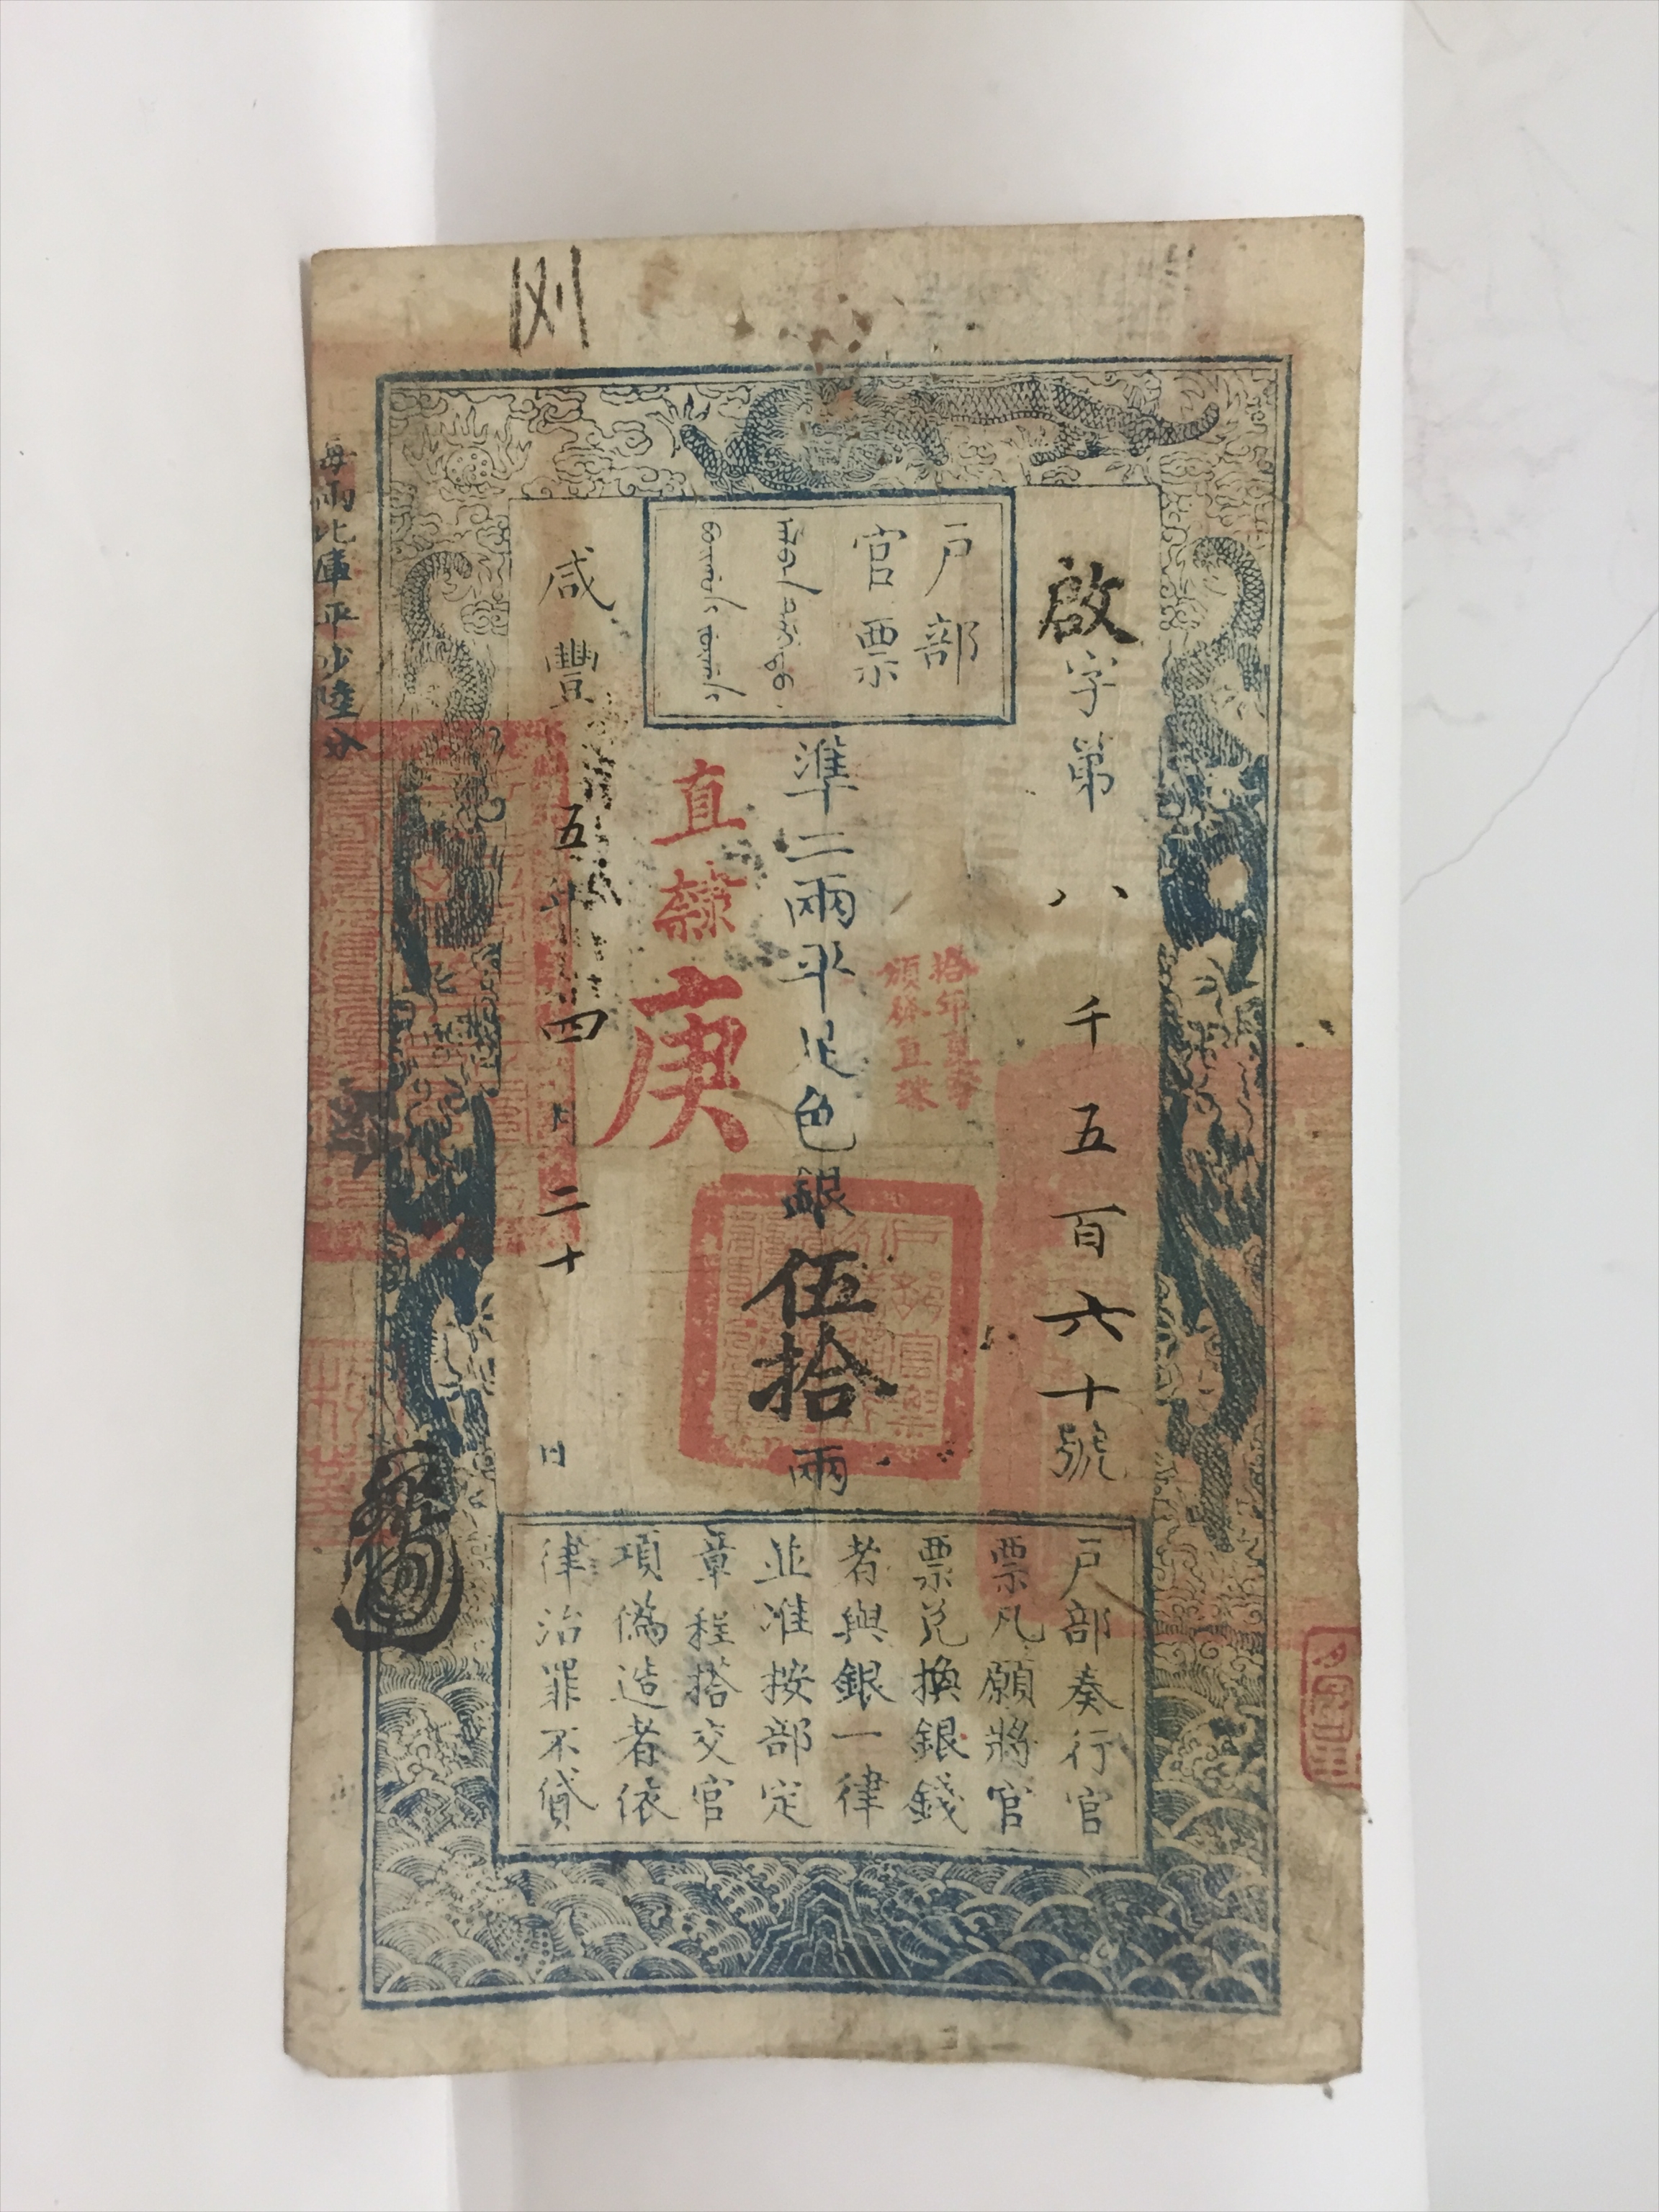 啟字第八千五百六十號
戶部
官票
準二兩平足色銀伍拾兩
直隸
庚
咸豐五年四月二十日
每兩比庫平少陸分
戶部奏行官
票凡願將官
票兌換銀錢
者與銀一律
並准按部定
章程搭交官
項偽造者依
律治罪不貸